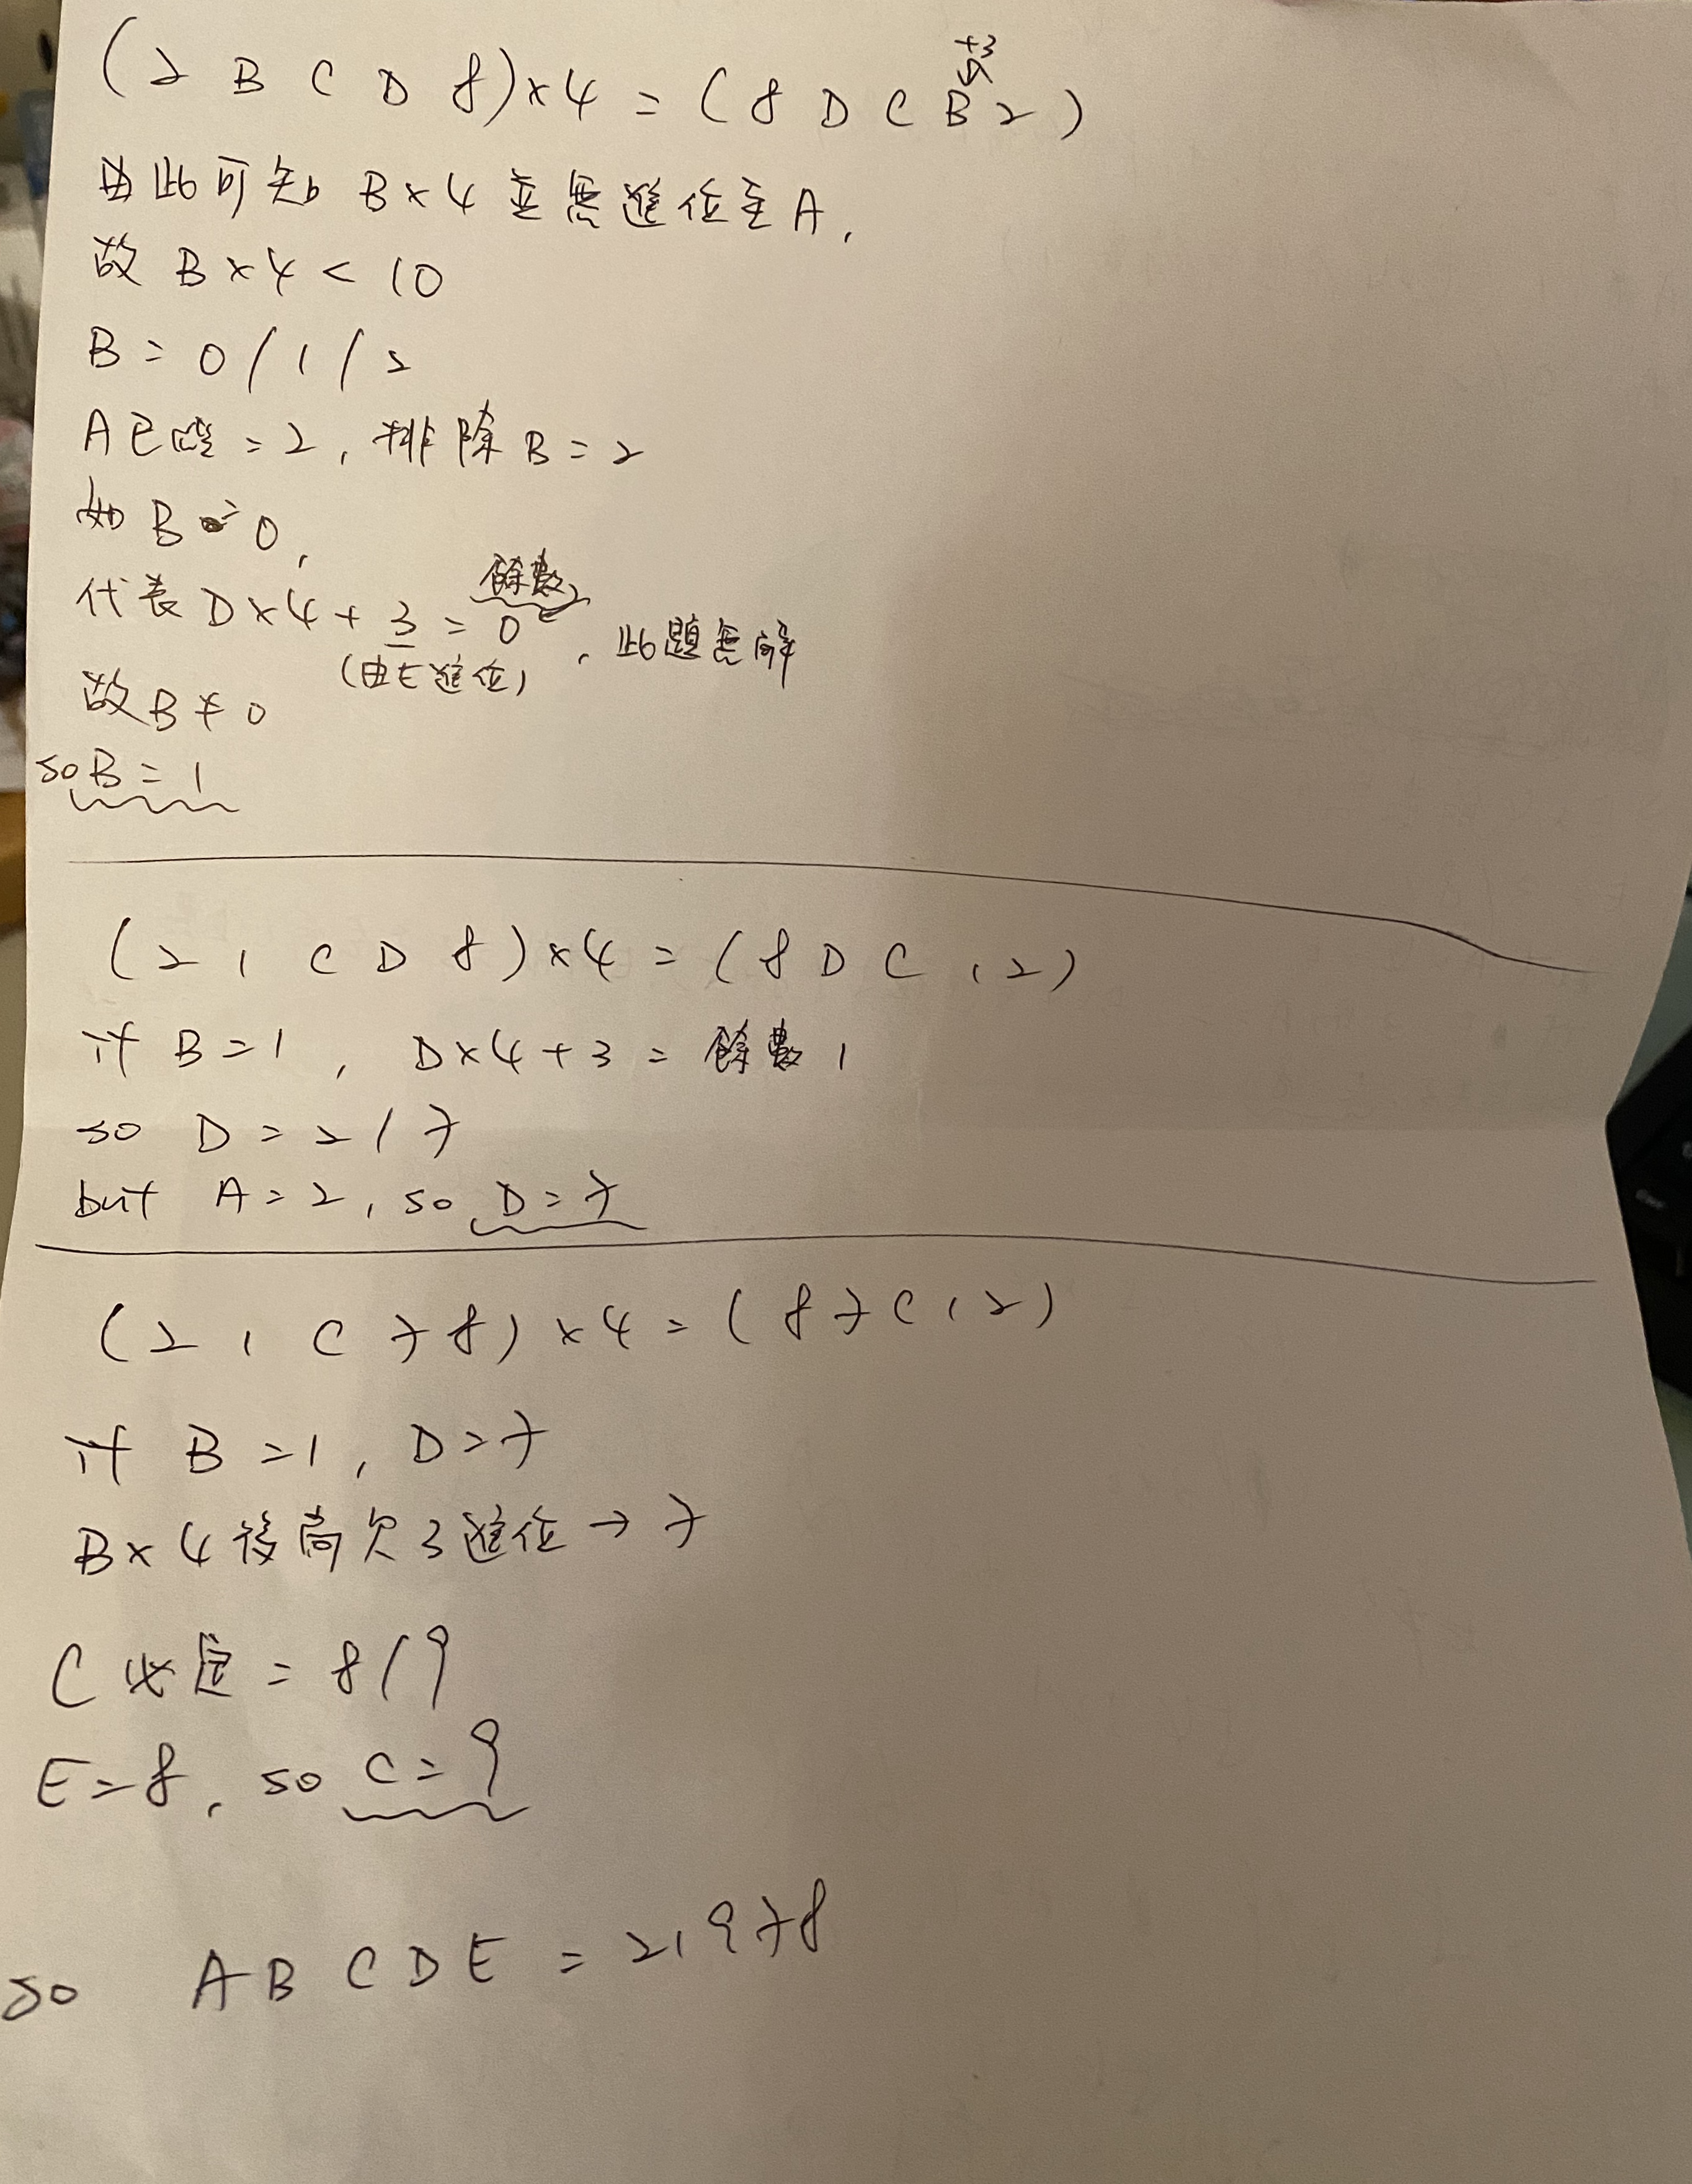 +3
(2 B C D 8)×4 = (8 D C B 2)
由此可知 B×4 並無進位至A,
故 B×4 < 10
B = 0/1/2
A已確=2, 排除B=2
如B=0,
餘數
代表 D×4+3 = 0, 此題無解
(由E進位)
故B≠0
so B=1
(2 1 C D 8)×4 = (8 D C 1 2)
if B=1, D×4+3 = 餘數1
so D = 2/7
but A=2, so D=7
(2 1 C 7 8)×4 = (8 7 C 1 2)
if B=1, D=7
B×4 後尚欠3進位→7
C必定=8/9
E=8, so C=9
so A B C D E = 21978